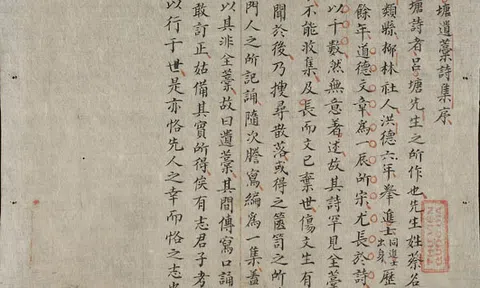 塘遺藁詩集序
塘詩者呂塘先生之所作也先生姓蔡名
縣柳林社人洪德六年舉進士同進士出身歷
餘年道德文章為一辰所宗尤長於詩
以千數然無意著述故其詩罕見全藁
不能收集及長而文已棄世傷文生有
聞於後乃搜尋散落或得之篋笥之所
門人之所記誦隨次謄寫編為一集蓋
以其非全藁故曰遺藁其間傳寫口誦
敢訂正姑備其實所得俟有志君子考
以行于世是亦恪先人之幸而恪之志也